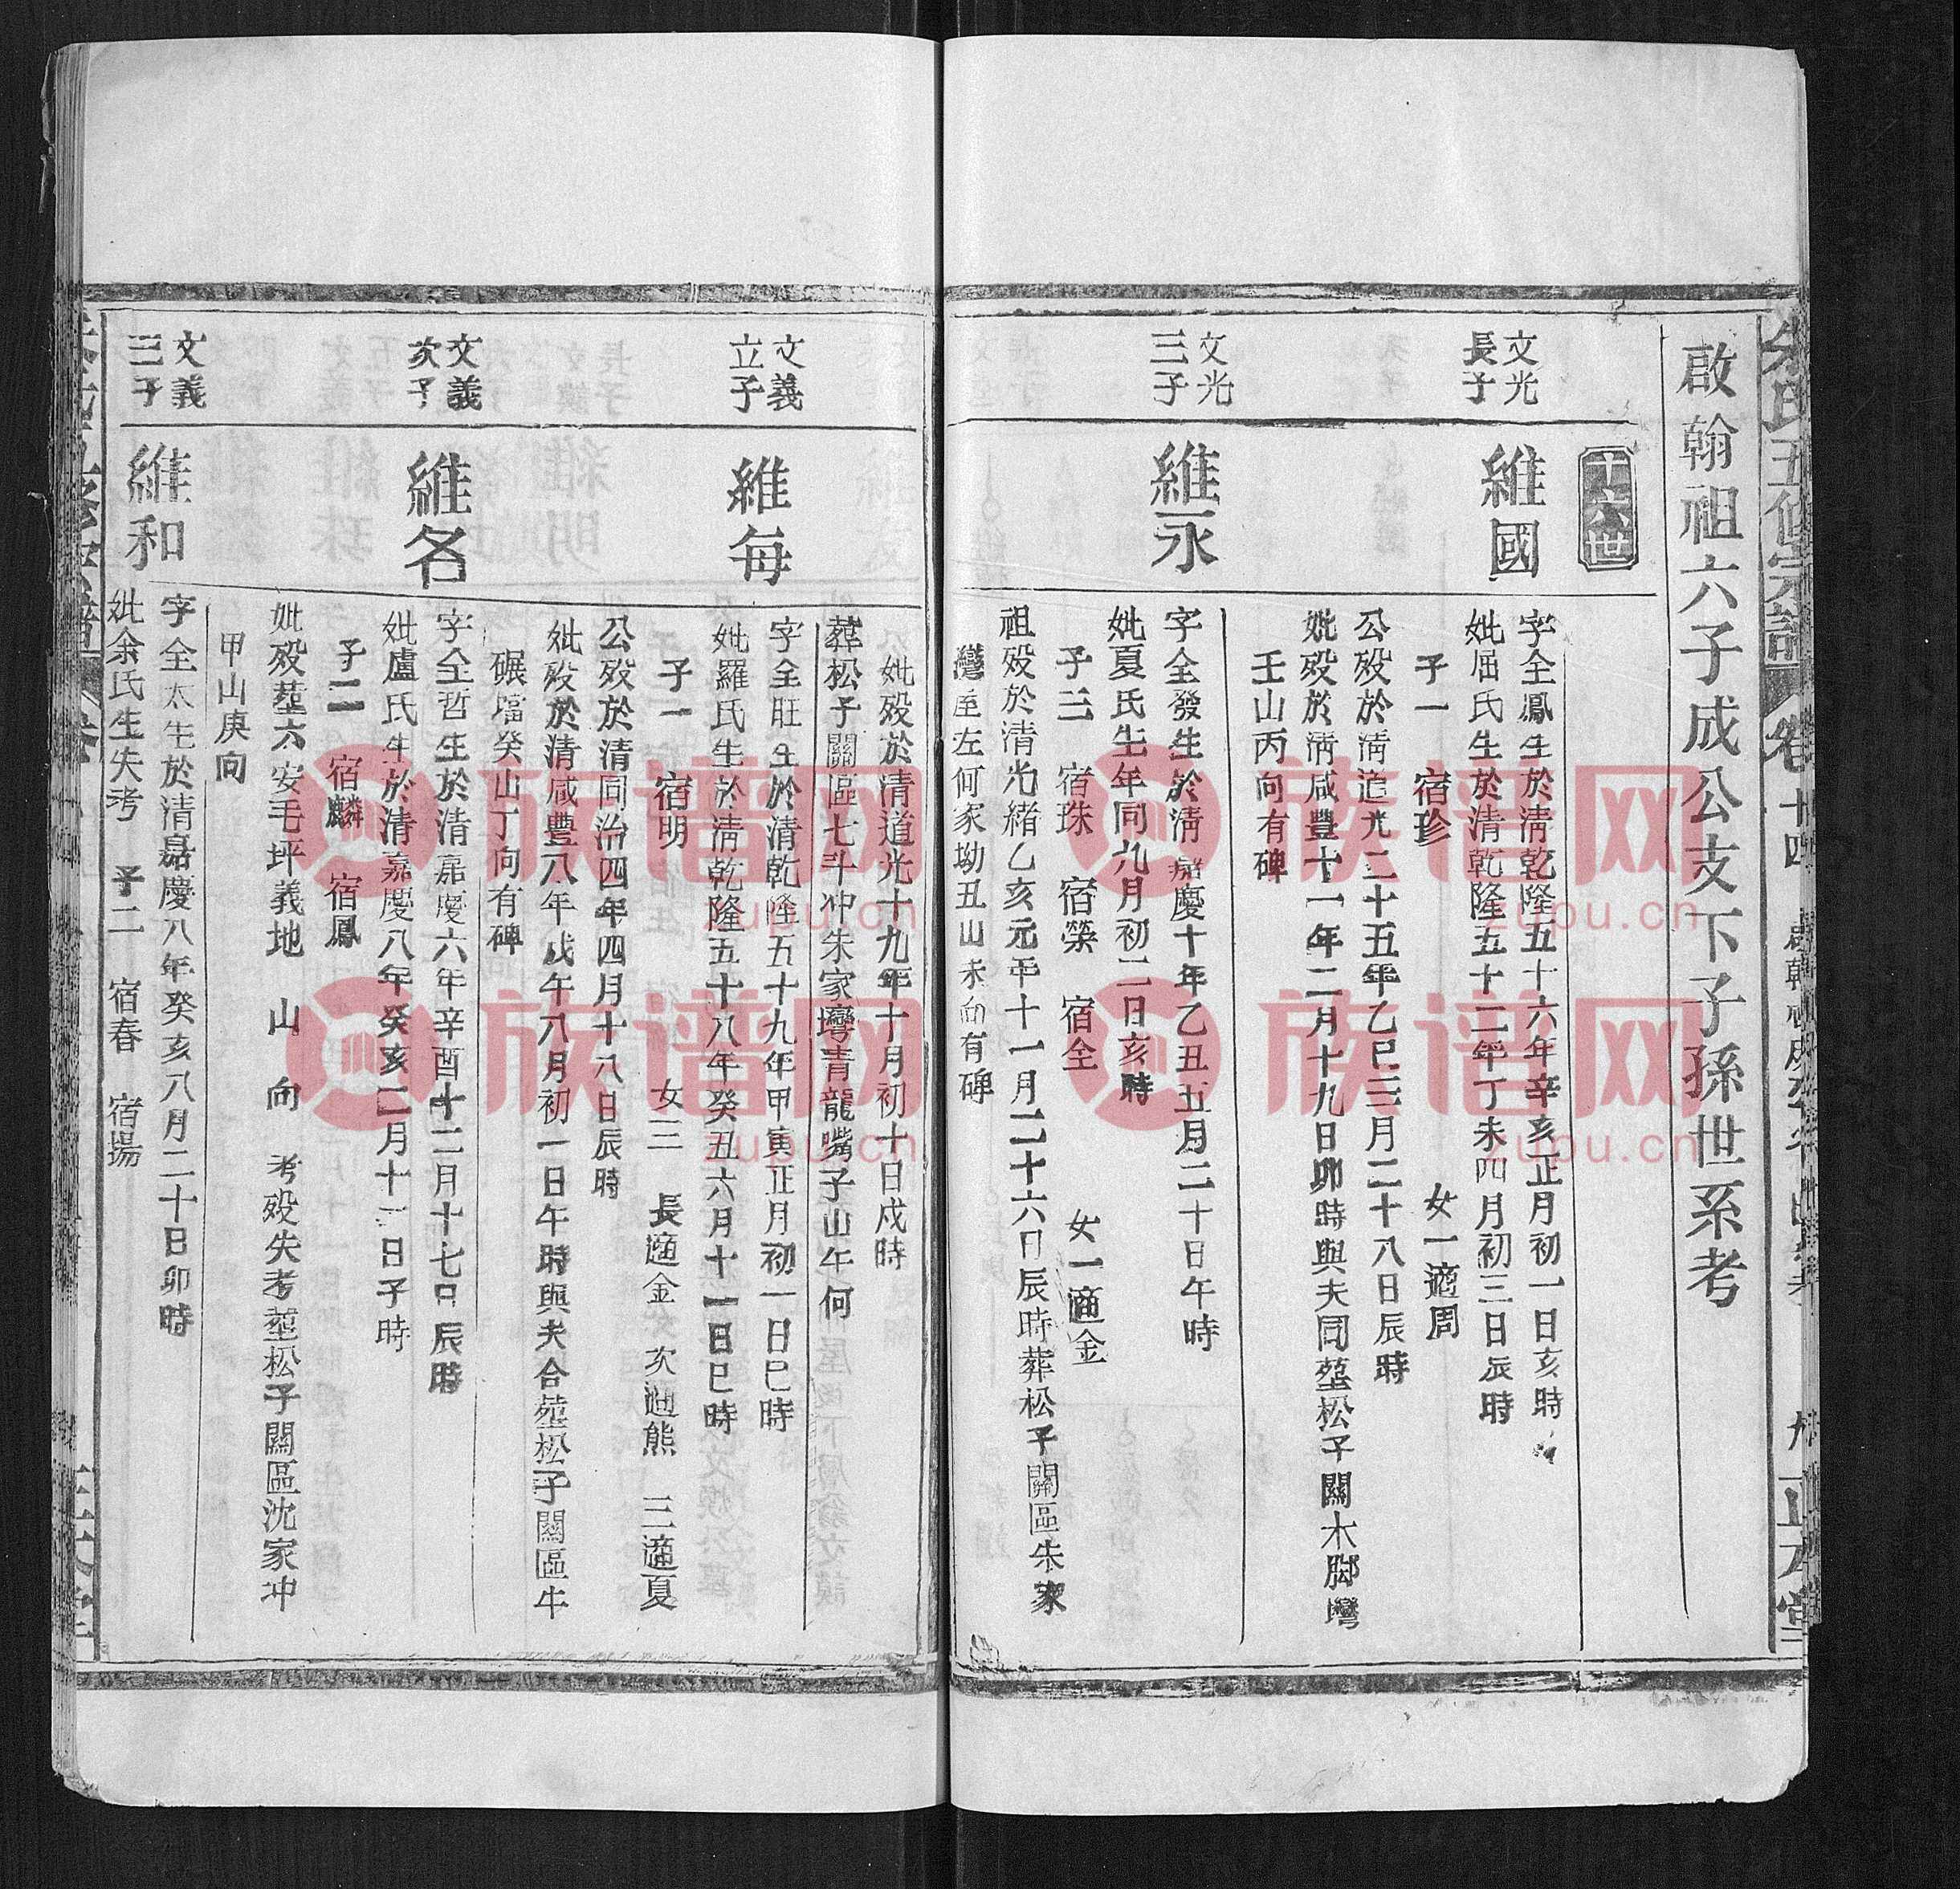 朱氏五修宗譜
卷十四
九
正大堂
啟翰祖六子成公支下子孫世系考
十六世
文光
長子
維國
字全鳳生於清乾隆五十六年辛亥正月初一日亥時
妣屈氏生於清乾隆五十二年丁未四月初三日辰時
子一 宿珍 女一適周
公歿於清道光二十五年乙巳三月二十八日辰時
妣歿於清咸豐十一年二月十九日卯時與夫同塟松子關木脚灣
壬山丙向有碑
文光
三子
維永
字全發生於清嘉慶十年乙丑五月二十日午時
妣夏氏生年同九月初二日亥時
子三 宿珠 宿榮 宿全 女一適金
祖歿於清光緒乙亥元年十一月二十六日辰時葬松子關區朱家
灣座左何家坳丑山未向有碑
妣歿於清道光十九年十月初十日戍時
葬松子關區七斗冲朱家塆青龍嘴子山午何
文義
立子
維每
字全旺生於清乾隆五十九年甲寅正月初一日巳時
妣羅氏生於清乾隆五十八年癸丑六月十一日巳時
子一 宿明 女三 長適金 次適熊 三適夏
公歿於清同治四年四月十八日辰時
妣歿於清咸豐八年戊午八月初一日午時與夫合塟松子關區牛
碾壋癸山丁向有碑
文義
次子
維名
字全哲生於清嘉慶六年辛酉十二月十七日辰時
妣盧氏生於清嘉慶八年癸亥二月十一日子時
子二 宿麟 宿鳳
妣歿塟六安毛坪義地 山 向 考歿失考塟松子關區沈家冲
甲山庚向
文義
三子
維和
字全太生於清嘉慶八年癸亥八月二十日卯時
妣余氏生失考 子二 宿春 宿揚
族谱网
zupu.cn
族谱网
zupu.cn
族谱网
zupu.cn
族谱网
zupu.cn